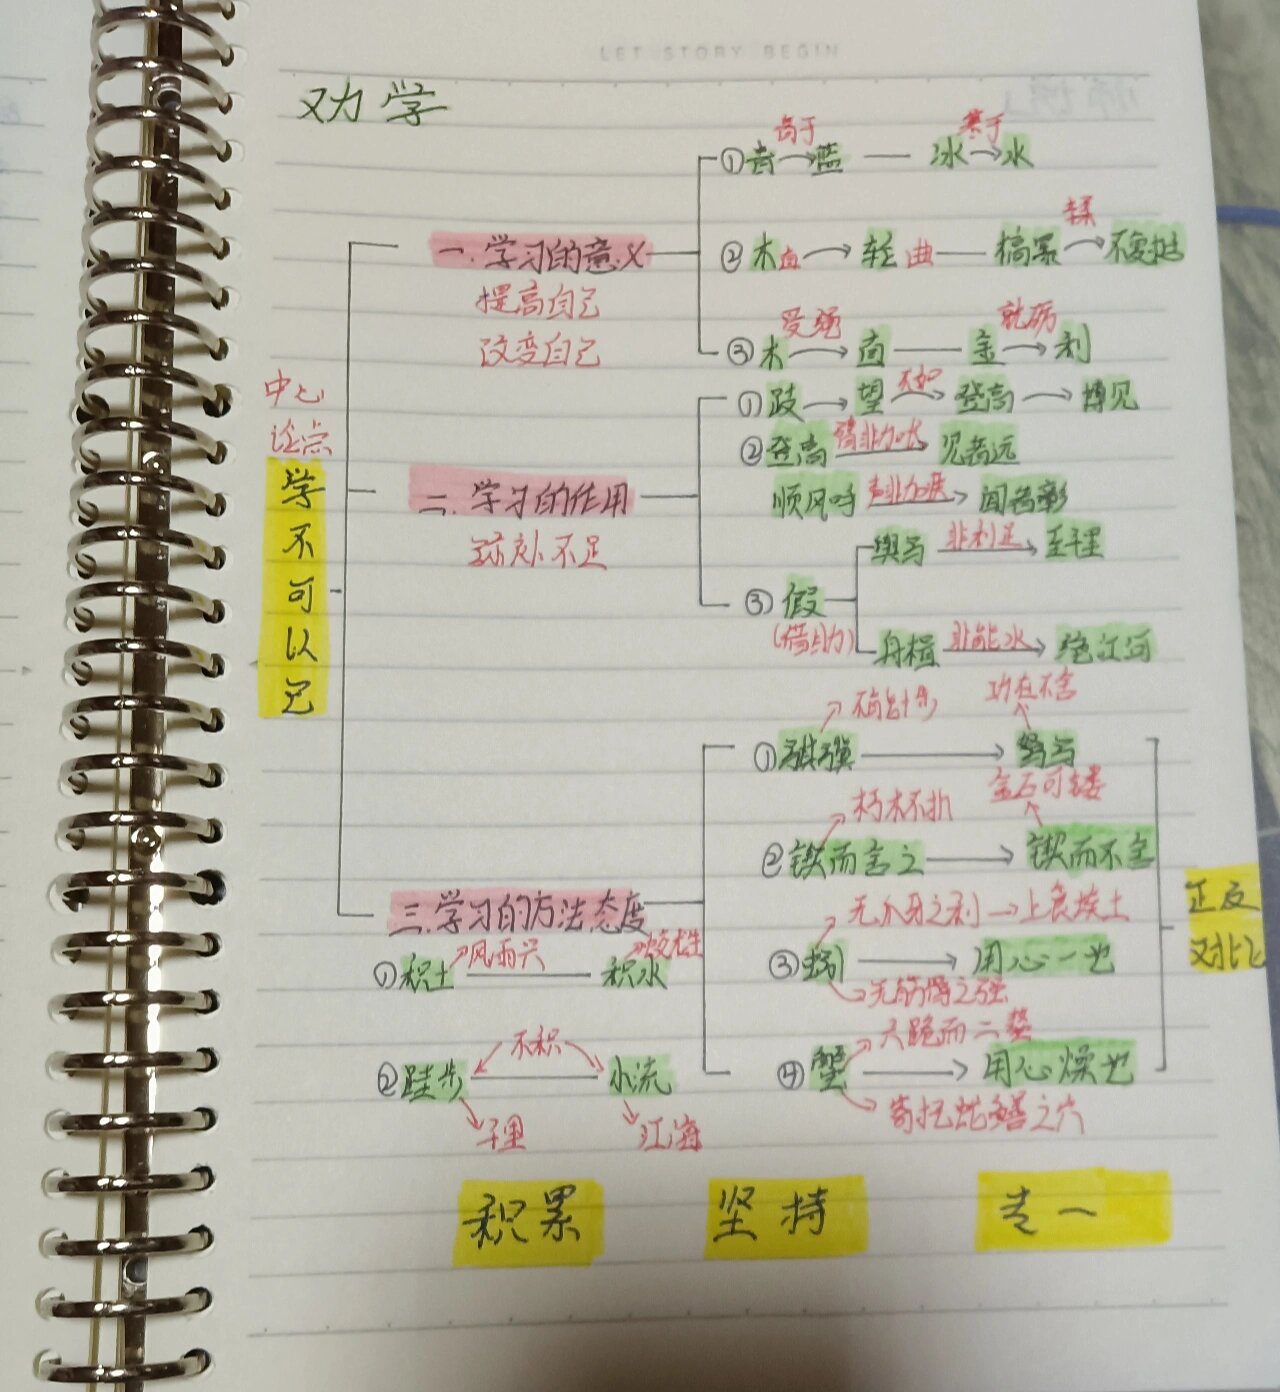 LET STORY BEGIN
劝学
中心
论点
学不可以已
一.学习的意义
提高自己
改变自己
高于 寒于
①青→蓝 — 冰→水
輮
②木直→轮曲 — 槁暴→不复挺
受绳 就砺
③木→直 — 金→利
二.学习的作用
弥补不足
不如
①跂→望→登高→博见
②登高 臂非加长→ 见者远
顺风呼 声非加疾→ 闻者彰
③假
(借助)
舆马 非利足→ 至千里
舟楫 非能水→ 绝江河
三.学习的方法态度
①积土 — 积水
风雨兴 蛟龙生
②跬步 — 小流
不积
千里 江海
不能十步 功在不舍
①骐骥→驽马
朽木不折 金石可镂
②锲而舍之→锲而不舍
无爪牙之利→上食埃土
③蚓→用心一也
无筋骨之强
六跪而二螯
④蟹→用心燥也
寄托蛇鳝之穴
正反
对比
积累 坚持 专一